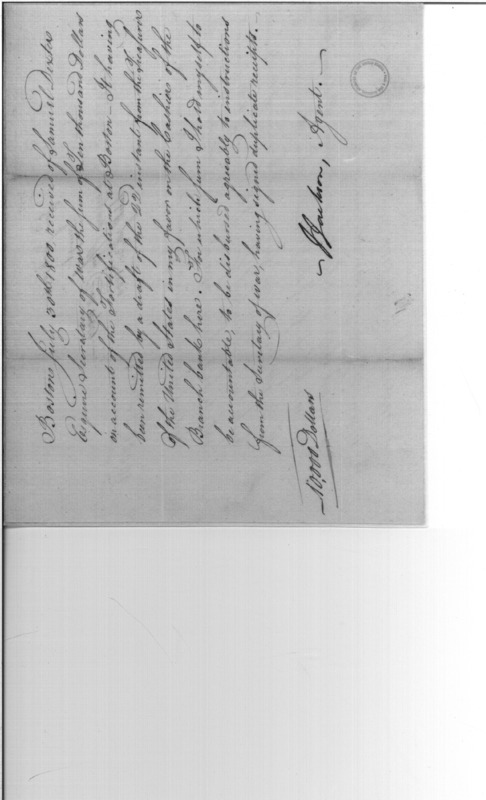 Boston July 30th 1800 received of Samuel Dexter
Esquire Secretary of war, the sum of Ten thousand Dollars
on account of the Fortifications at Boston — It having
been remitted by a draft of the 22d instant from the Treasurer
of the United States in my favor on the Cashier of the
Branch bank here. For which sum I hold myself to
be accountable; to be disbursed agreeably to instructions
from the Secretary of war; having signed duplicate receipts. —
J Jackson, Agent. —
10,000 Dollars